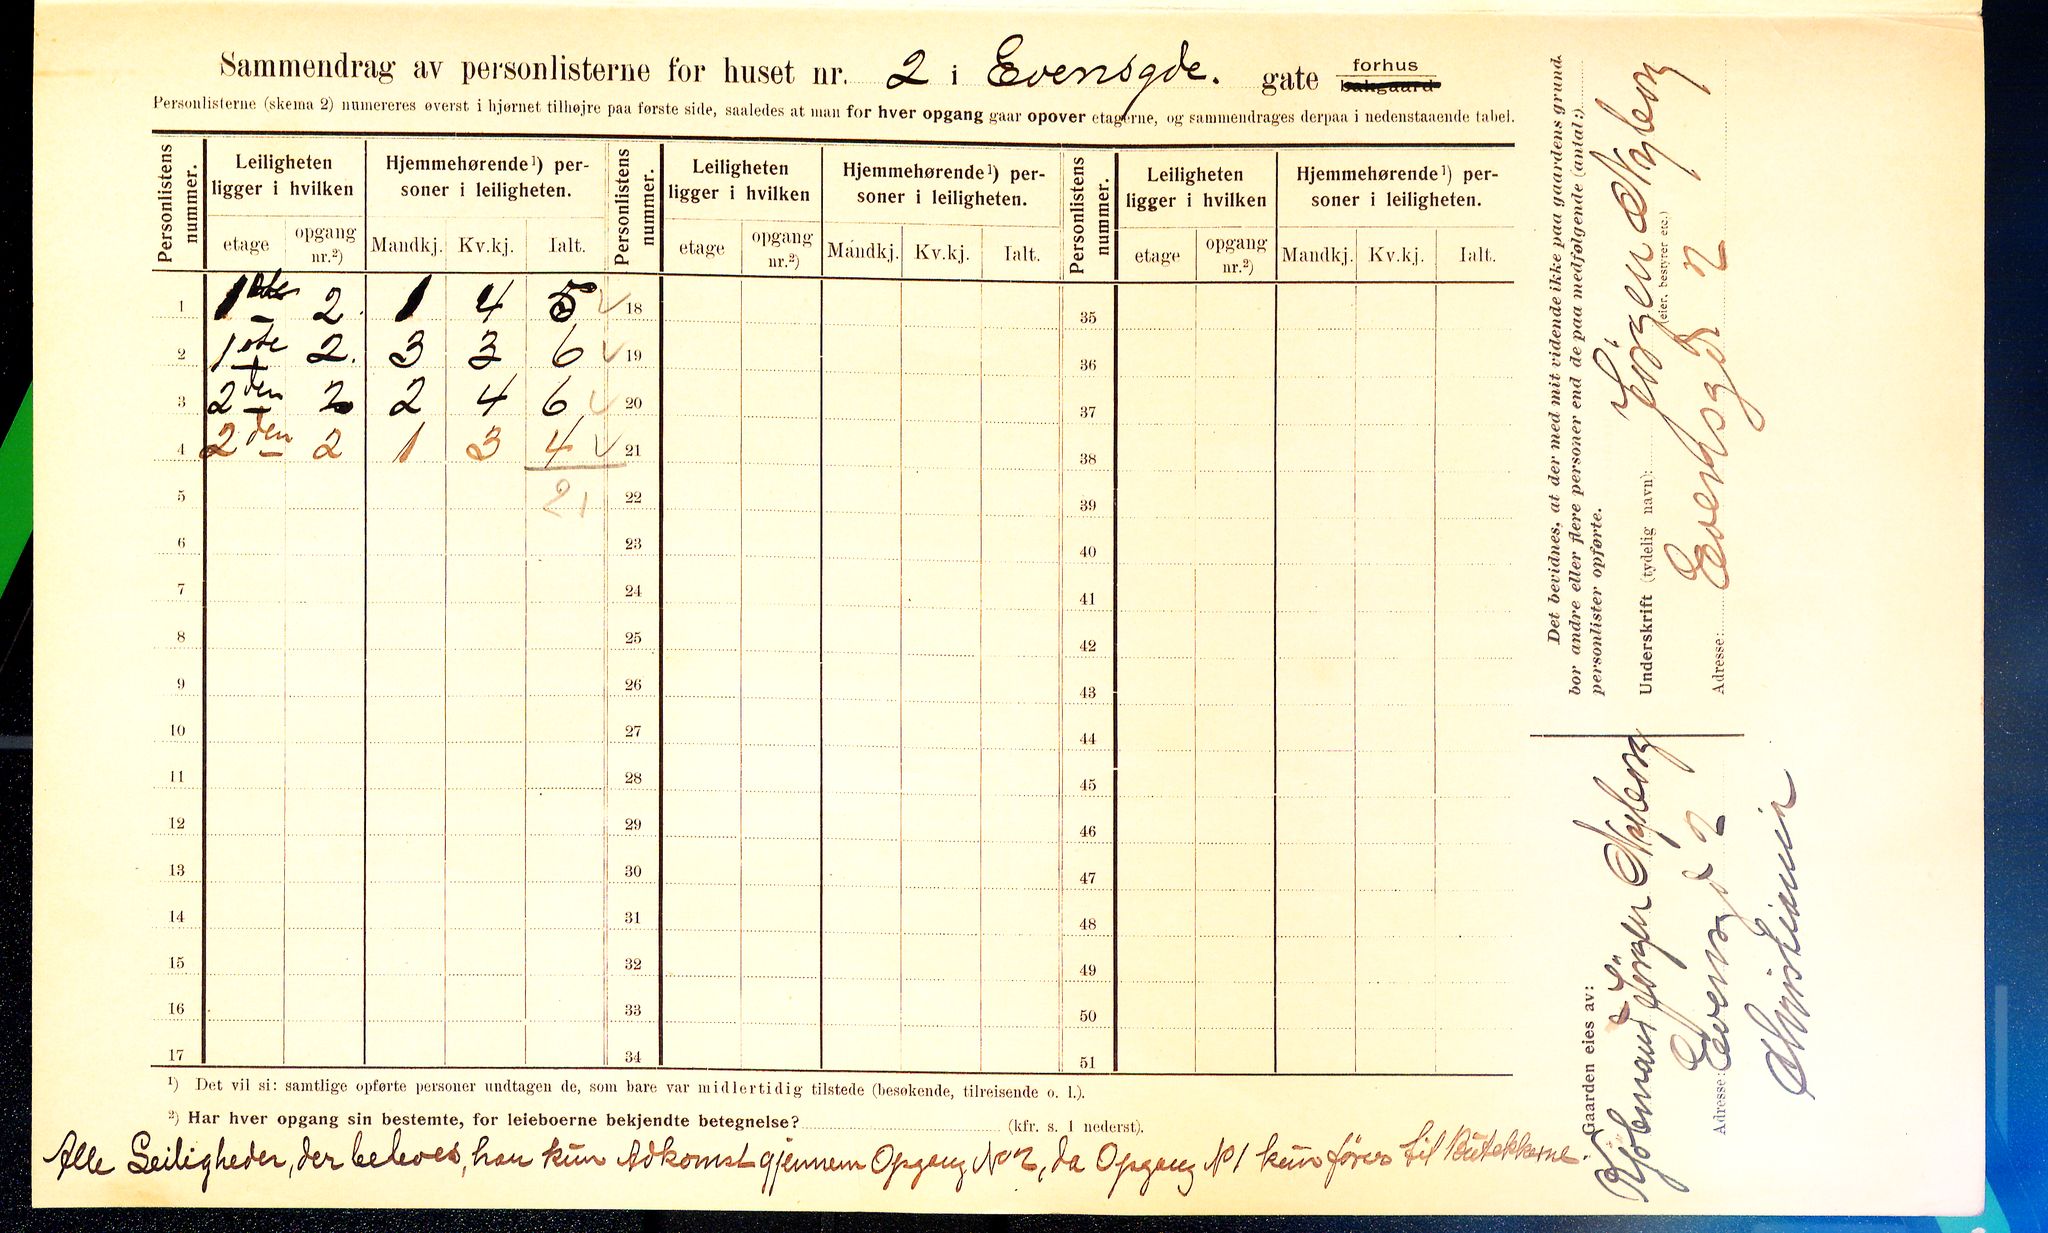 Sammendrag av personlisterne for huset nr. 2 i Evensgde. gate forhus bakgaard
Personlisterne (skema 2) numereres øverst i hjørnet tilhøjre paa første side, saaledes at man for hver opgang gaar opover etagerne, og sammendrages derpaa i nedenstaaende tabel.
Personlistens nummer. Leiligheten ligger i hvilken Hjemmehørende¹) personer i leiligheten. Personlistens nummer. Leiligheten ligger i hvilken Hjemmehørende¹) personer i leiligheten. Personlistens nummer. Leiligheten ligger i hvilken Hjemmehørende¹) personer i leiligheten.
etage opgang nr.²) Mandkj. Kv.kj. Ialt. etage opgang nr.²) Mandkj. Kv.kj. Ialt. etage opgang nr.²) Mandkj. Kv.kj. Ialt.
1 1ste 2 1 4 5 18 35
2 1ste 2. 3 3 6 19 36
3 2den 2 2 4 6 20 37
4 2den 2 1 3 4 21 38
5 21 22 39
6 23 40
7 24 41
8 25 42
9 26 43
10 27 44
11 28 45
12 29 46
13 30 47
14 31 48
15 32 49
16 33 50
17 34 51
¹) Det vil si: samtlige opførte personer undtagen de, som bare var midlertidig tilstede (besøkende, tilreisende o. l.).
²) Har hver opgang sin bestemte, for leieboerne bekjendte betegnelse? (kfr. s. 1 nederst).
Alle Leiligheder, der beboes, har kun Adkomst gjennem Opgang No 2, da Opgang No 1 kun fører til Butekkerne.
Det bevidnes, at der med mit vidende ikke paa gaardens grund
bor andre eller flere personer end de paa medfølgende (antal:)
personlister opførte.
Underskrift (tydelig navn): Jörgen Nyborg
(eier, bestyrer etc.)
Adresse: Evensgd 2
Gaarden eies av:
Kjøbmand Jörgen Nyborg
Adresse: Evensgd 2
Christiania